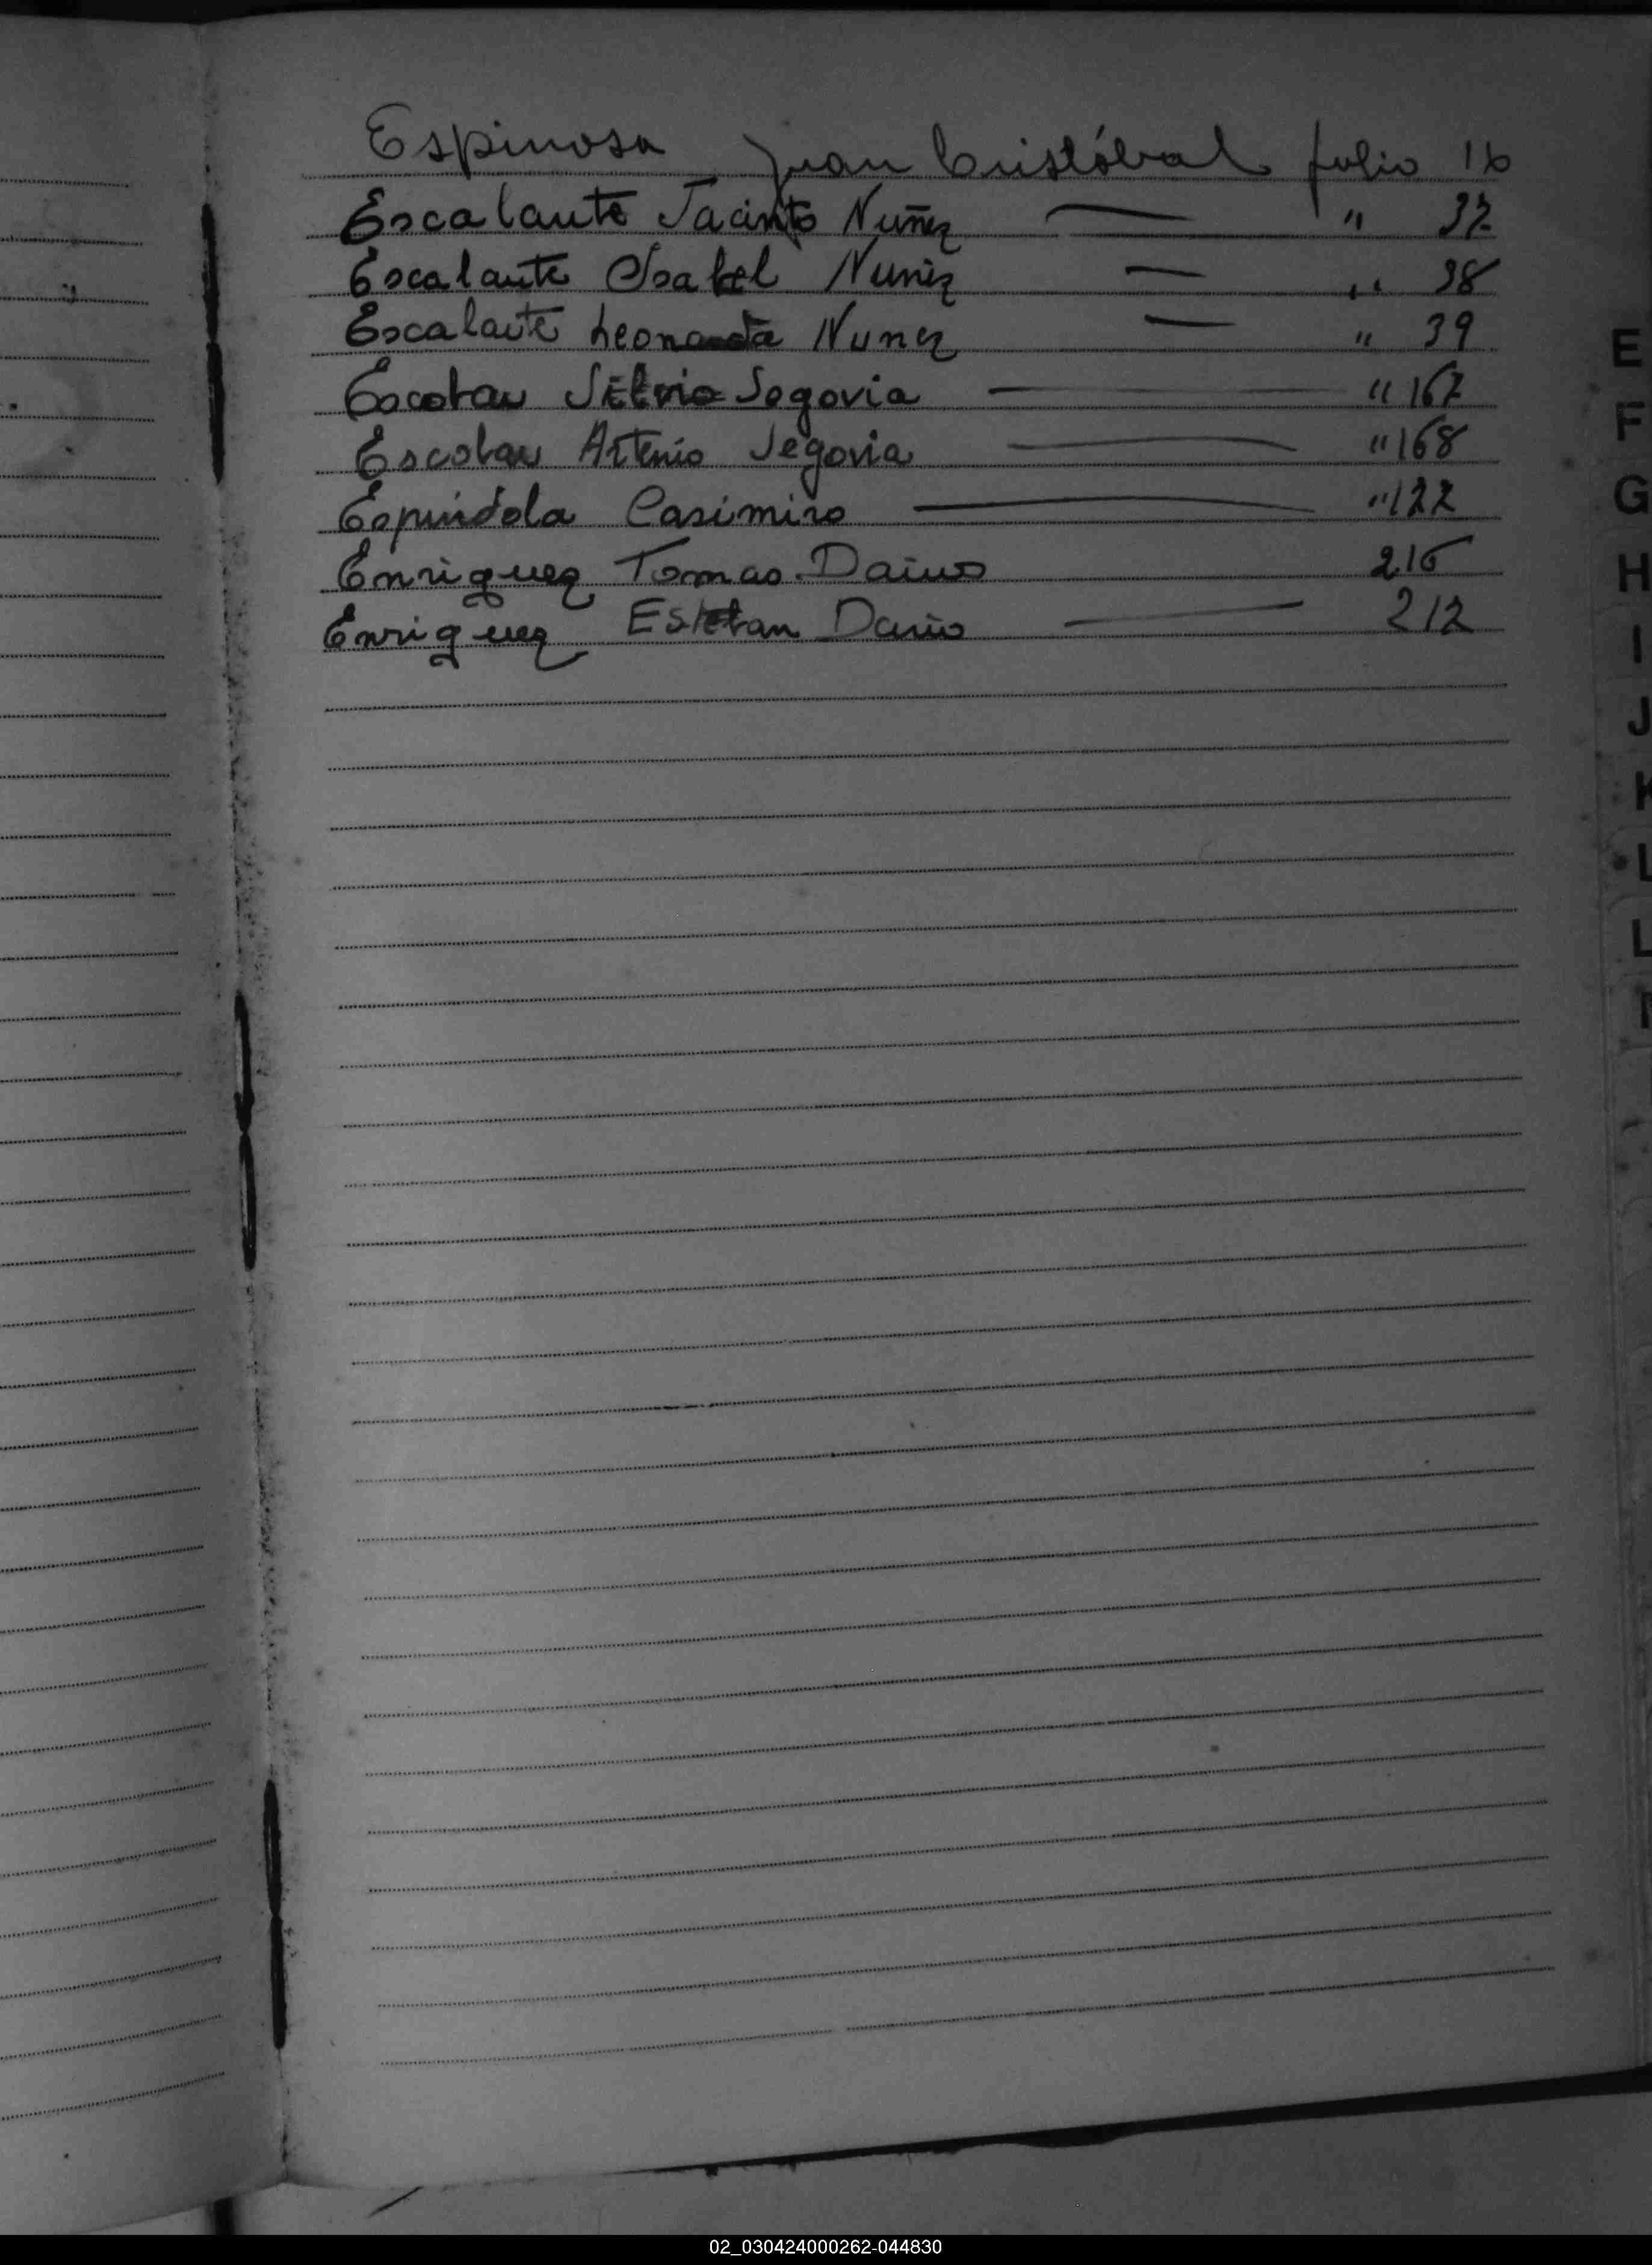 Espinosa Juan Cristóbal folio 16
Escalante Jacinto Nuñez — " 37
Escalante Isabel Nuñez — " 38
Escalante Leonarda Nunez — " 39
Escobar Silvio Segovia — " 167
Escobar Artenio Segovia — " 168
Espindola Casimiro — " 122
Enriquez Tomas Dario 216
Enriquez Esteban Dario — 212
E
F
G
H
I
J
K
L
L
02_030424000262-044830